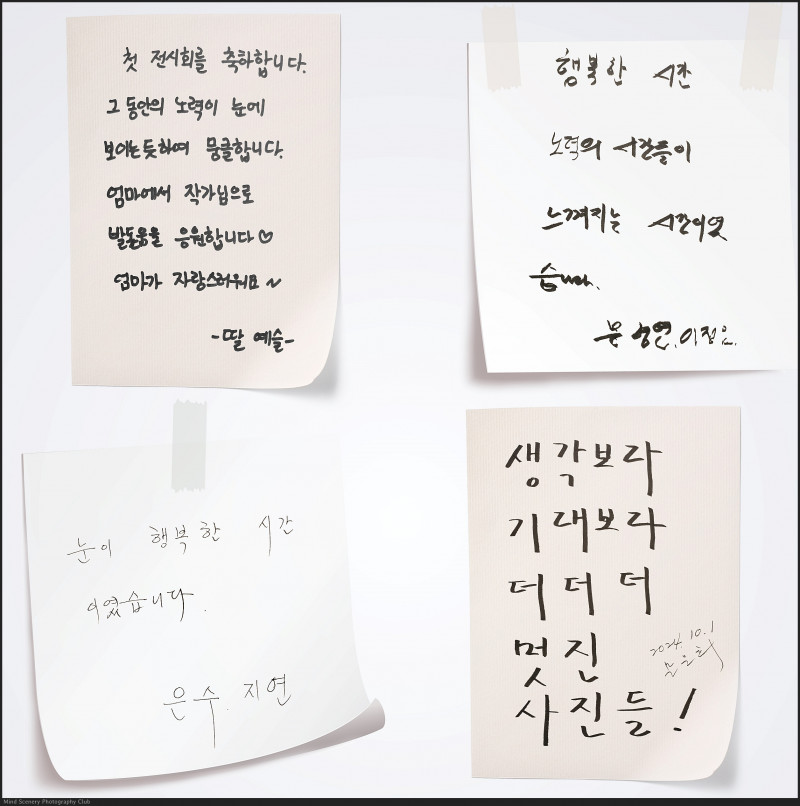 첫 전시회를 축하합니다.
그 동안의 노력이 눈에
보이는듯하여 뭉클합니다.
엄마에서 작가님으로
발돋움을 응원합니다♡
엄마가 자랑스러워요~
-딸 예슬-
행복한 시간
노력의 시간들이
느껴지는 시간이였
습니다.
문 이정은.
눈이 행복한 시간
이였습니다.
은수. 지연
생각보다
기대보다
더 더 더
멋진
사진들!
2024. 10. 1
Mind Scenery Photography Club